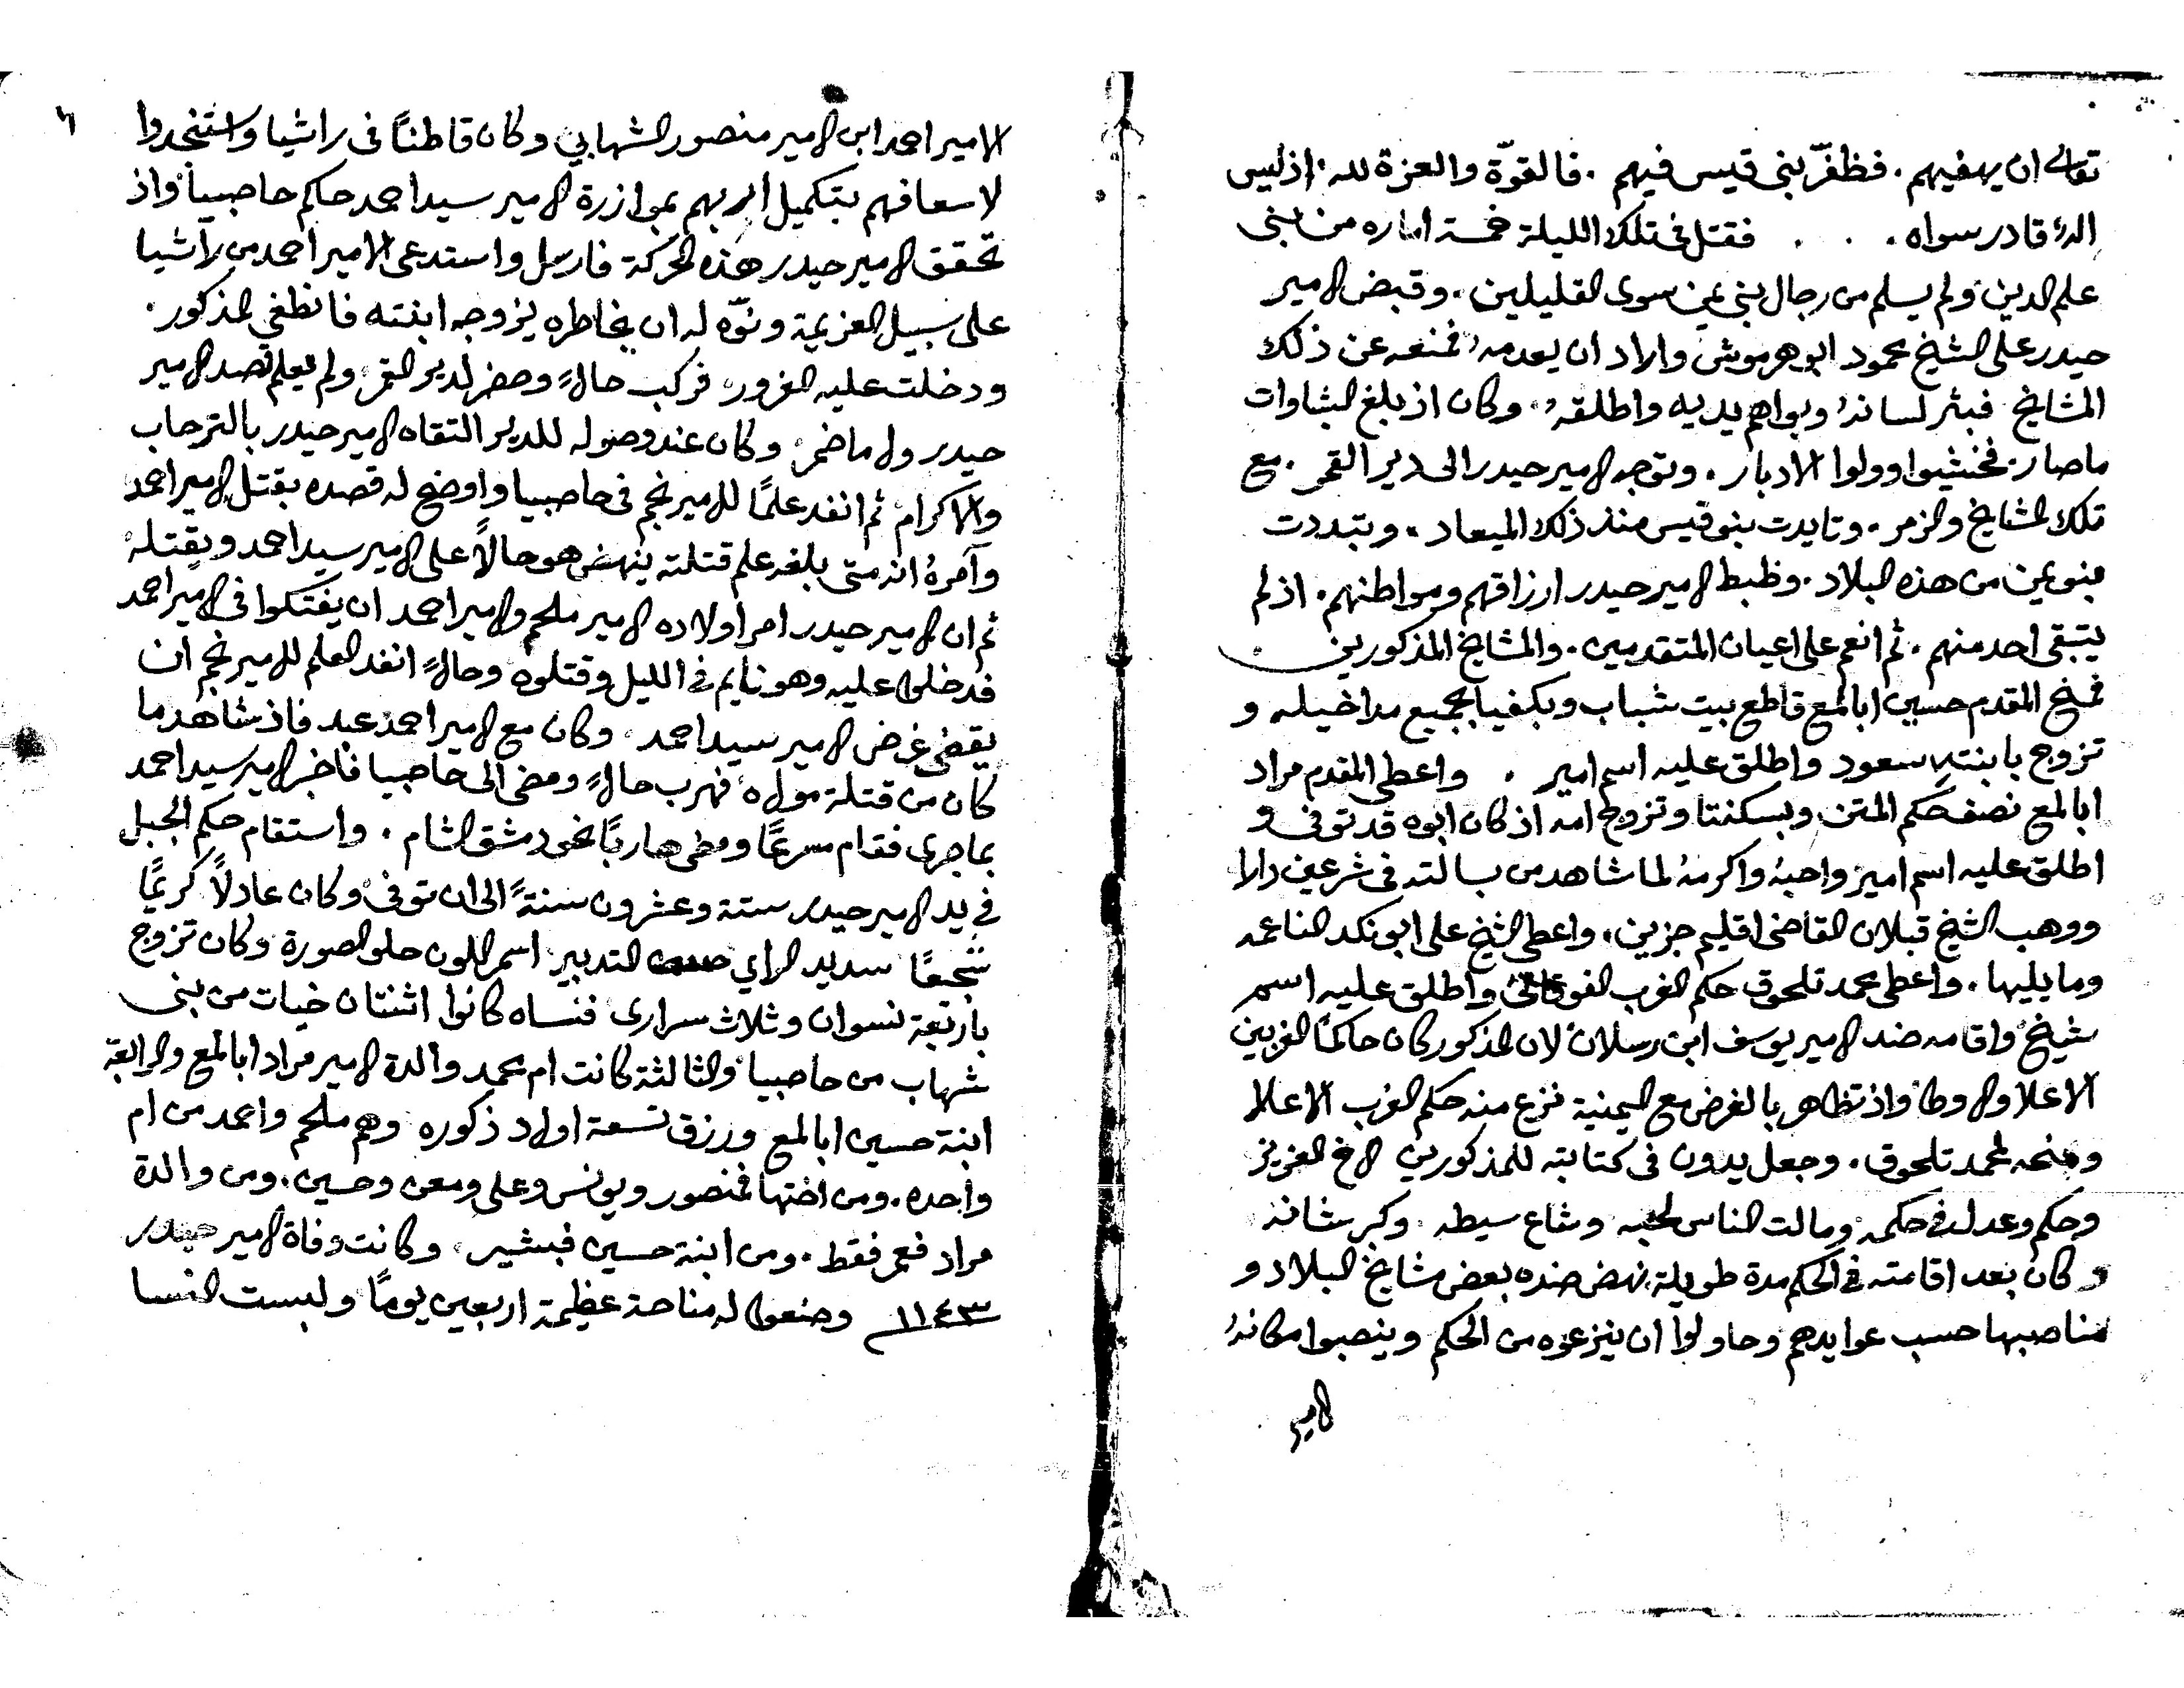 تعالى ان يهفيهم. فظفّر بني قيس فيهم. فالقوّة والعزة لله. اذ ليس
اله قادر سواه. . . فقتل في تلك الليلة خمسة اماره من بني
علم الدين ولم يسلم من رجال بني يمن سوى القليلين. وقبض الامير
حيدر على الشيخ محمود ابو هرموش واراد ان يعدمه فمنعه عن ذلك
المشايخ فبثر لسانه وبواهم يديه واطلقه. وكان اذ بلغ الباشاوات
ما صار فخشيوا وولوا الادبار. وتوجه الامير حيدر الى دير القمر. مع
تلك المشايخ والزمر. وتايدت بنو قيس منذ ذلك الميعاد. وتبددت
بنو يمن من هذه البلاد. وظبط الامير حيدر ارزاقهم ومواطنهم. اذ لم
يتبقى احد منهم. ثم انعم على اعيان المتقدمين. والمشايخ المذكورين
فمنح المقدم حسين ابالمع قاطع بيت شباب وبكفيا بجميع مداخيله و
تزوج بابنته سعود واطلق عليه اسم امير. واعطى المقدم مراد
ابالمع نصف حكم المتن وبسكنتا وتزوج امه اذ كان ابوه قد توفى و
اطلق عليه اسم امير واحبهُ واكرمهُ لما شاهد من بسالته في شر عين دارا
ووهب الشيخ قبلان القاضي اقليم جزين. واعطى الشيخ على ابو نكد الناعمه
وما يليها. واعطى محمد تلحوق حكم الغرب الفوقاني واطلق عليه اسم
شيخ واقامه ضد الامير يوسف ابن رسلان لان المذكور كان حاكمًا الغربين
الاعلا والاوطا واذ تظاهر بالغرض مع اليمنية نزع منه حكم الغرب الاعلا
ومنحه لمحمد تلحوق. وجعل يدون في كتابته للمذكورين الاخ العزيز
وحكم وعدل في حكمه ومالت الناس لحبه وشاع سيطه وكبر شانه
وكان بعد اقامته في الحكم مدة طويلة نهض ضده بعض مشايخ البلاد و
مناصبها حسب عوايدهم وحاولوا ان ينزعوه من الحكم وينصبوا مكانهُ
الامير
٦
الامير احمد ابن الامير منصور الشهابي وكان قاطنًا في راشيا واستنجدوا
لاسعافهم بتكميل اربهم بموازرة الامير سيد احمد حكم حاصبيا واذ
تحقق الامير حيدر هذه الحركة فارسل واستدعى الامير احمد من راشيا
على سبيل العزيمة ونوّه له ان بخاطره يزوجه ابنته فانطغي المذكور.
ودخلت عليه الغرور فركب حالاً وحضر لدير القمر ولم يعلم قصد الامير
حيدر ولا ما ضمر وكان عند وصوله للدير التقاه الامير حيدر بالترحاب
والاكرام ثم انفد علمًا للامير نجم في حاصبيا واوضح له قصده بقتل الامير احمد
وآمرهُ انه متى بلغه علم قتلته ينهض هو حالاً على الامير سيد احمد ويقتلهُ
ثم ان الامير حيدر امر اولاده الامير ملحم والامير احمد ان يفتكوا في الامير احمد
فدخلوا عليه وهو نايم في الليل وقتلوه وحالاً انفد العلم للامير نجم ان
يقضي غرض الامير سيد احمد وكان مع الامير احمد عبد فاذ شاهد ما
كان من قتلة مولاه فهرب حالاً ومضى الى حاصبيا فاخبر الامير سيد احمد
بما جرى فقام مسرعًا ومضى هاربًا نحو دمشق الشام. واستقام حكم الجبل
في يد الامير حيدر ستة وعشرون سنةً الى ان توفى وكان عادلاً كريمًا
شجعًا سديد الراي حسن التدبير اسمر اللون حلو الصورة وكان تزوج
باربعة نسوان وثلاث سرارى فنساه كانوا اثنتان خيات من بني
شهاب من حاصبيا والثالثة كانت ام محمد والدة الامير مراد ابالمع والرابعة
ابنة حسين ابالمع ورزق تسعة اولاد ذكوره وهم ملحم واحمد من ام
واحده. ومن اختها فمنصور ويونس وعلى ومعن وحسين. ومن والدة
مراد فعمر فقط. ومن ابنة حسين فبشير. وكانت وفاة الامير حيدر
سنة ١١٤٣ وصنعوا له مناحة عظيمة اربعين يومًا ولبست النسا